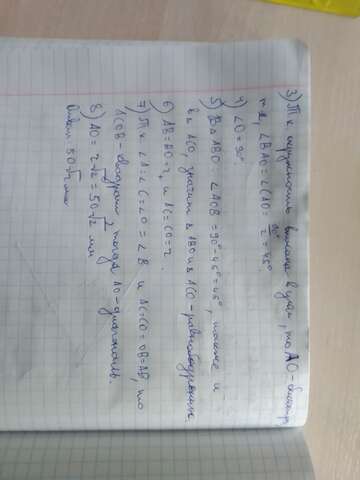 3) Т.к окружность вписана в угол, то AO-биссектр.
т.е, ∠BAO=∠CAO= 90°/2 =45°
4) ∠O=90°
5) В Δ ABO: ∠AOB=90°-45°=45°, также и
в Δ ACO, значит Δ ABO и Δ ACO-равнобедренные.
6) AB=BO=r, и AC=CO=r.
7) Т.к ∠A=∠C=∠O=∠B и AC=CO=OB=AB, то
ACOB-квадрат, тогда AO-диагональ.
8) AO=r√2=50√2 мм
Ответ: 50√2 мм